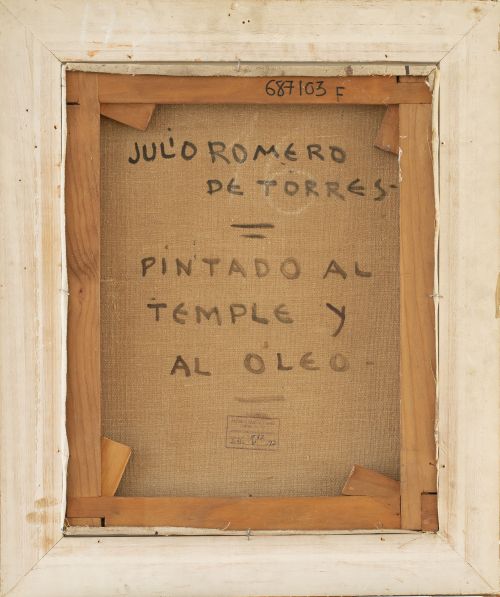 687103 F
JULIO ROMERO
DE TORRES-
PINTADO AL
TEMPLE Y
AL OLEO-